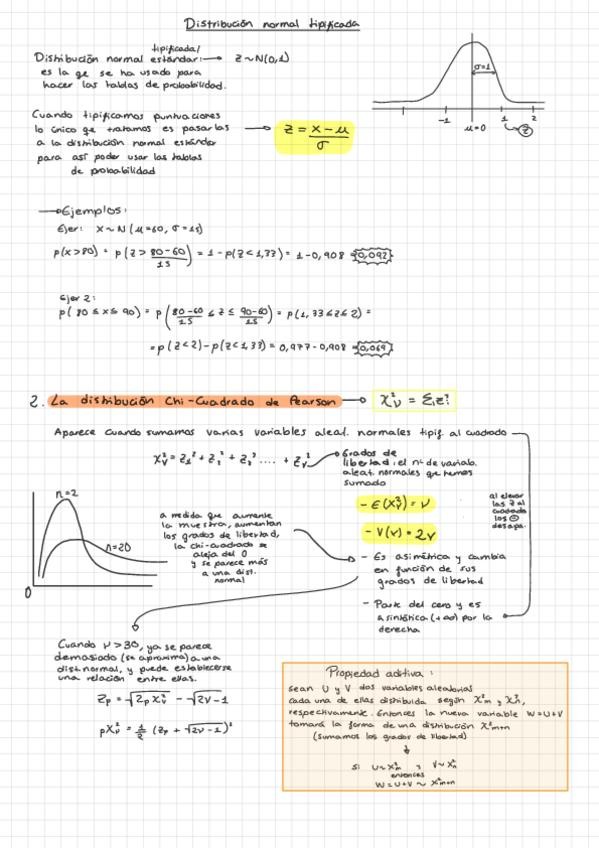 Distribución normal tipificada
tipificada/
Distribución normal estándar: → Z ~ N(0,1)
es la qe se ha usado para
hacer las tablas de probabilidad.
σ=1
-1
1
2
μ=0
Z
Cuando tipificamos puntuaciones
lo único qe tratamos es pasarlas → Z = x - μ / σ
a la distribución normal estándar
para así poder usar las tablas
de probabilidad
→ Ejemplos:
Ejer: X ~ N (μ=60, σ=15)
p(x>80) = p(z > 80-60/15) = 1 - p(z<1,33) = 1 - 0,908 = 0,092
Ejer 2:
p(80 ≤ x ≤ 90) = p(80-60/15 ≤ z ≤ 90-60/15) = p(1,33 ≤ z ≤ 2) =
= p(z<2) - p(z<1,33) = 0,977 - 0,908 = 0,069
2. La distribución Chi-Cuadrado de Pearson → χ²ν = Σz²i
Aparece cuando sumamos varias variables aleat. normales tipif. al cuadrado
χ²ν = z1² + z2² + z3² .... + zν²
Grados de
libertad: el nº de variab.
aleat. normales que hemos
sumado
n=2
n=20
0
a medida que aumenta
la muestra, aumentan
los grados de libertad,
la chi-cuadrado se
aleja del 0
y se parece más
a una dist.
normal
- E(χ²ν) = ν
- V(ν) = 2ν
al elevar
las z al
cuadrado
los ⊖
desapa.
- Es asimétrica y cambia
en función de sus
grados de libertad
- Parte del cero y es
asintótica (+∞) por la
derecha
Cuando ν > 30, ya se parece
demasiado (se aproxima) a una
dist. normal, y puede establecerse
una relación entre ellas.
Zp = √2pχ²ν - √2ν-1
pχ²ν = 1/2 (Zp + √2ν-1)²
Propiedad aditiva:
Sean U y V dos variables aleatorias
cada una de ellas distribuida según χ²m y χ²n,
respectivamente. Entonces la nueva variable W=U+V
tomará la forma de una distribución χ²m+n
(sumamos los grados de libertad)
↓
Si U ~ χ²m y V ~ χ²n
entonces
W = U+V ~ χ²m+n